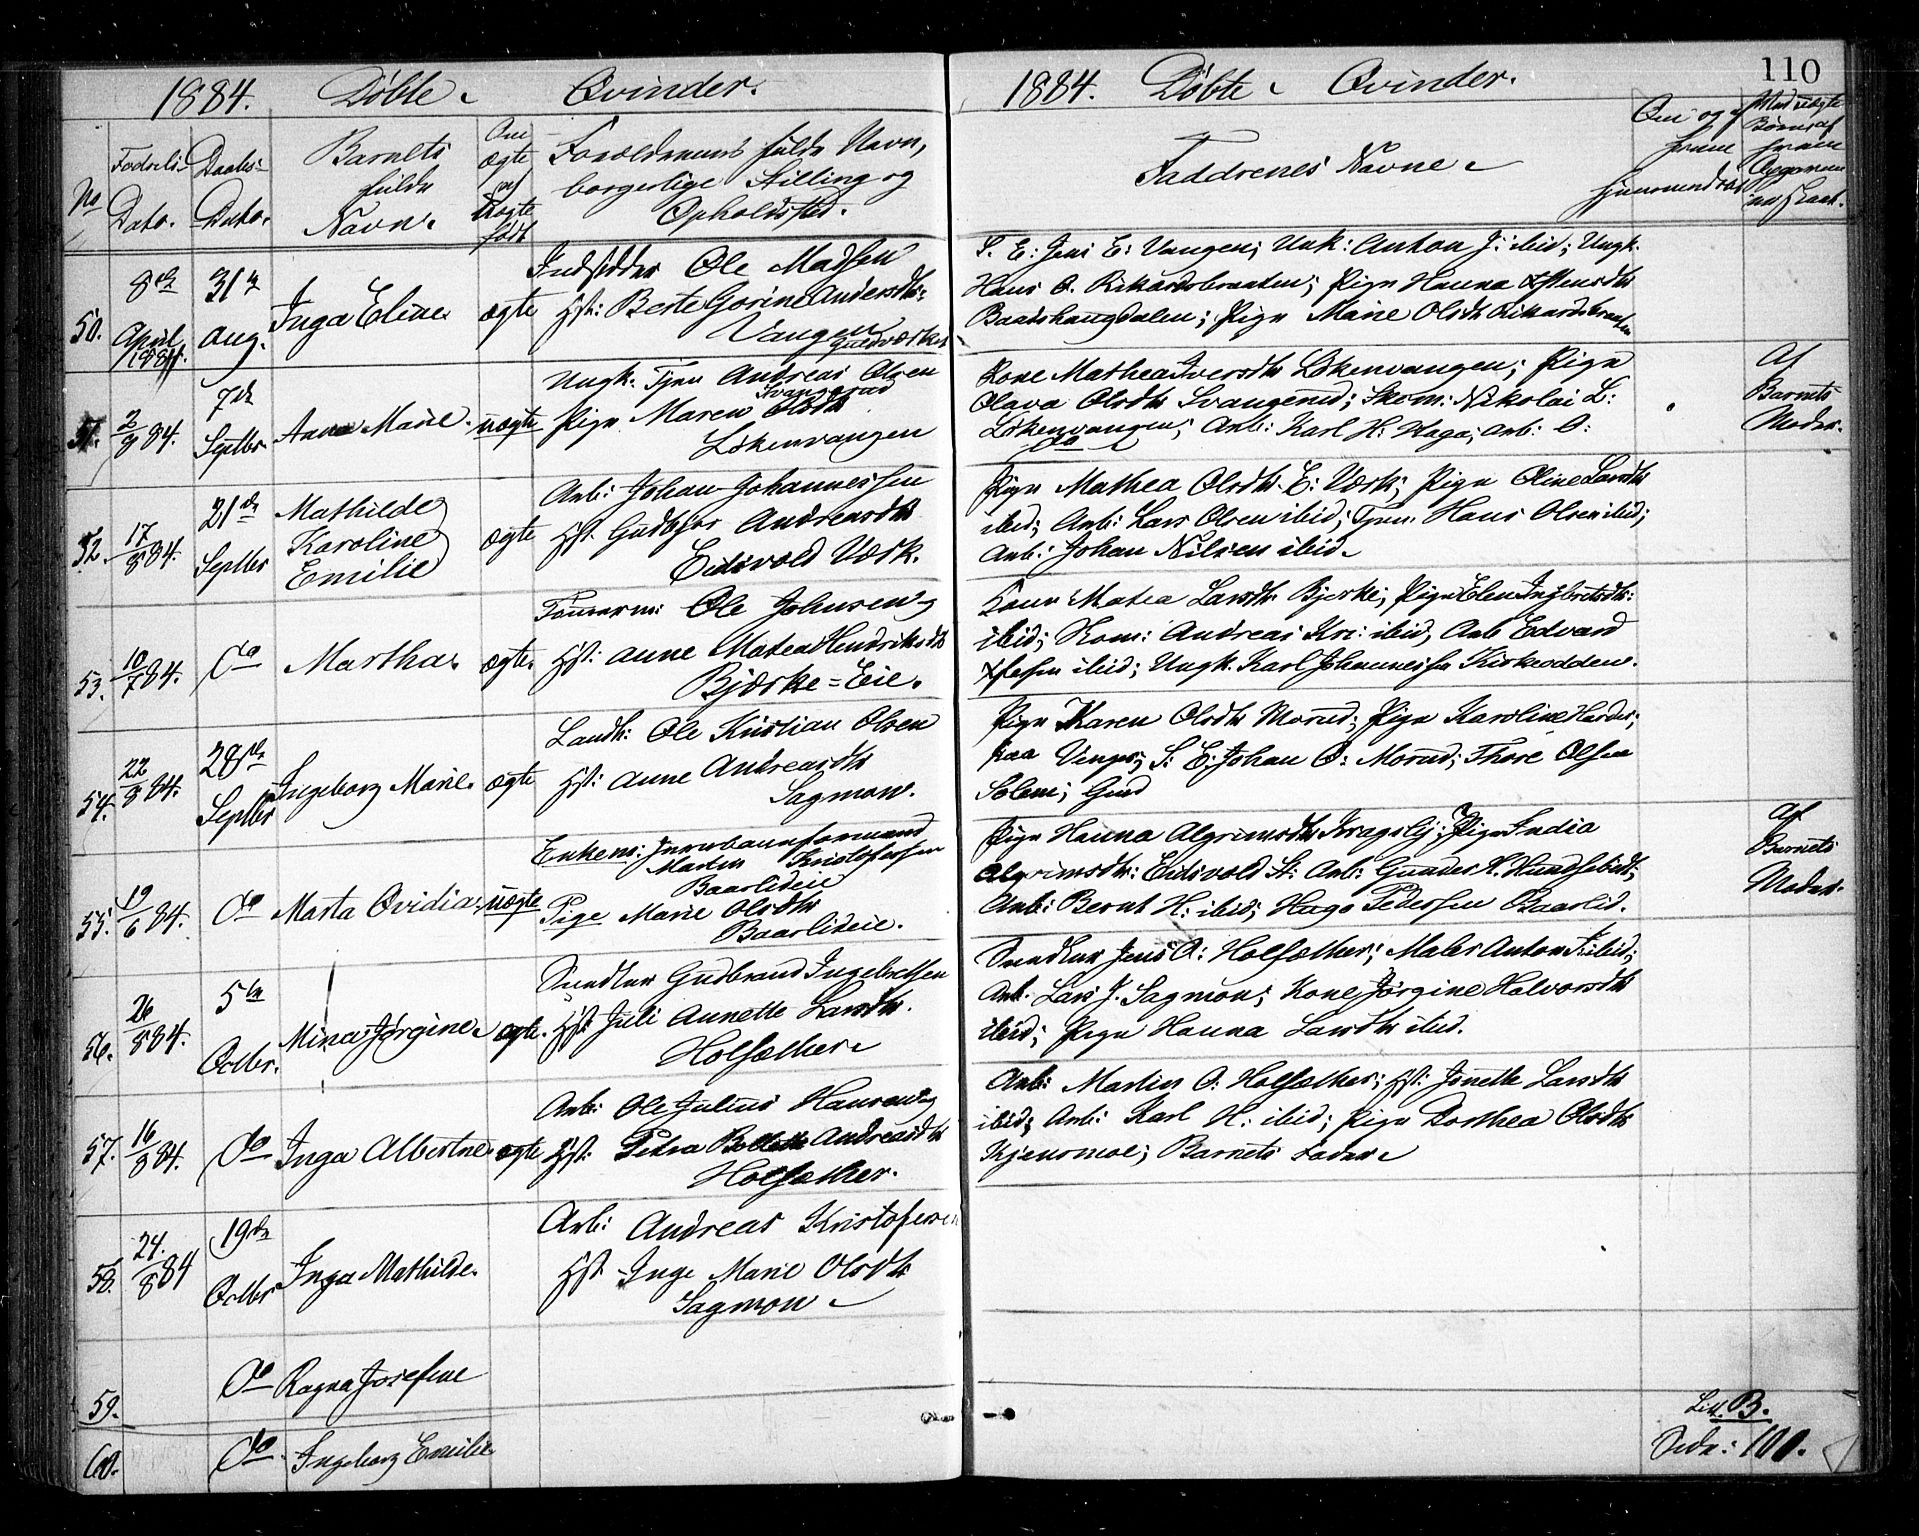 1884. Döbte Qvinder.
No
Födsels-
Dato.
Daabs-
Dato.
Barnets
fulde
Navn.
Om
ægte
el
uægte
født
Forældrenes fulde Navn,
borgerlige Stilling og
Opholdsted.
50.
8de
April
1884.
31te
Aug.
Inga Eline
ægte
Indsidder Ole Madsen
Hst: Berte Gorine Andersdtr:
Vangen
Guldværket
51.
2/8 84.
7de
Septbr
Anna Marie.
uægte
Ungk. Tjen Andreas Olsen
Svangerud
Pige Maren Olsdtr
Lökenvangen
52.
17/8 84.
21de
Septbr
Mathilde
Karoline
Emilie
ægte
Arb: Johan Johannessen
Hst. Gudbjør Andreasdtr
Eidsvold Værk.
53.
10/7 84.
Do
Martha.
ægte.
Tømrerm: Ole Johnsen
Hst: Anne Matea Hendriksdtr
Bjerke=Eie.
54.
22/8 84.
28de
Septbr
Ingeborg Marie.
ægte
Landh: Ole Kristian Olsen
Hst: Anne Andreasdtr
Sagmoen.
55.
19/6 84.
Do
Marta Ovidia.
uægte
Enkem: Jernbaneformand
Martin Kristofersen
Baarlideie
Pige Marie Olsdtr
Baarlideie.
56.
26/8 84.
5te
Octbr.
Mina Jørgine.
ægte.
Snedker Gudbrand Ingebretsen
Hst Juli Annette Larsdtr.
Holsæther
57.
16/8 84.
Do
Inga Albertne
ægte
Arb: Ole Julius Hansen
Hst: Petra Bollette Andreasdtr
Holsæther.
58.
24/8 84
19de
Octbr
Inga Mathilde.
Arb: Andreas Kristofersen
Hst. Inge Marie Olsdtr
Sagmoen
59.
Do
Ragna Josefine
60.
Do.
Ingeborg Emilie
110
1884. Döbte Qvinder.
Faddrenes Navne
Om og
Børn af
S. E: Jens E: Vangen; Unk: Anton J: ibid; Ungk.
Hans O. Rikardsbraaten; Pige Hanna
Baadshaugdalen; Pige Marie Olsdtr Rikardsbraaten
Kone Mathea Iversdtr Lökenvangen; Pige
Olava Olsdtr Svangerud; Skom: Nikolai L:
Lökenvangen; Arb: Karl H: Haga; Arb: O:
do
Af
Barnets
Moder.
Pige Mathea Olsdtr. E: Værk; Pige Oline Larsdtr
ibid; Arb: Lars Olsen ibid; Tjen: Hans Olsen ibid;
Arb: Johan Nilsen ibid.
Kone Matea Larsdtr Bjerke; Pige Elen Ingbretsdtr:
ibid; Skom: Andreas Kri: ibid, Arb Edvard
ibid; Ungk. Karl Johannessen Kirkeodden.
Pige Karen Olsdtr Morud; Pige Karoline
paa Venger; S: E: Johan O: Morud; Thore Olsen
Pige Hanna Algrimsdtr Kragslij; Pige India
Algrimsdtr: Eidsvold St: Arb: Gunder H. Hundsebedt;
Arb: Bernt H: ibid; Hugo Pedersen Baarlid.
Af
Barnets
Moder.
Snedker Jens A: Holsæther; Maler Anton ibid;
Arb. Lars J. Sagmoen; Kone Jørgine Halvorsdtr
ibid; Pige Hanna Larsdtr ibid.
Arb: Martin O: Holsæther; Hst: Jonette Larsdtr
ibid; Arb: Karl H: ibid; Pige Dorthea Olsdtr
Kjensmoe; Barnets Fader
Lit. B.
Side: 100.